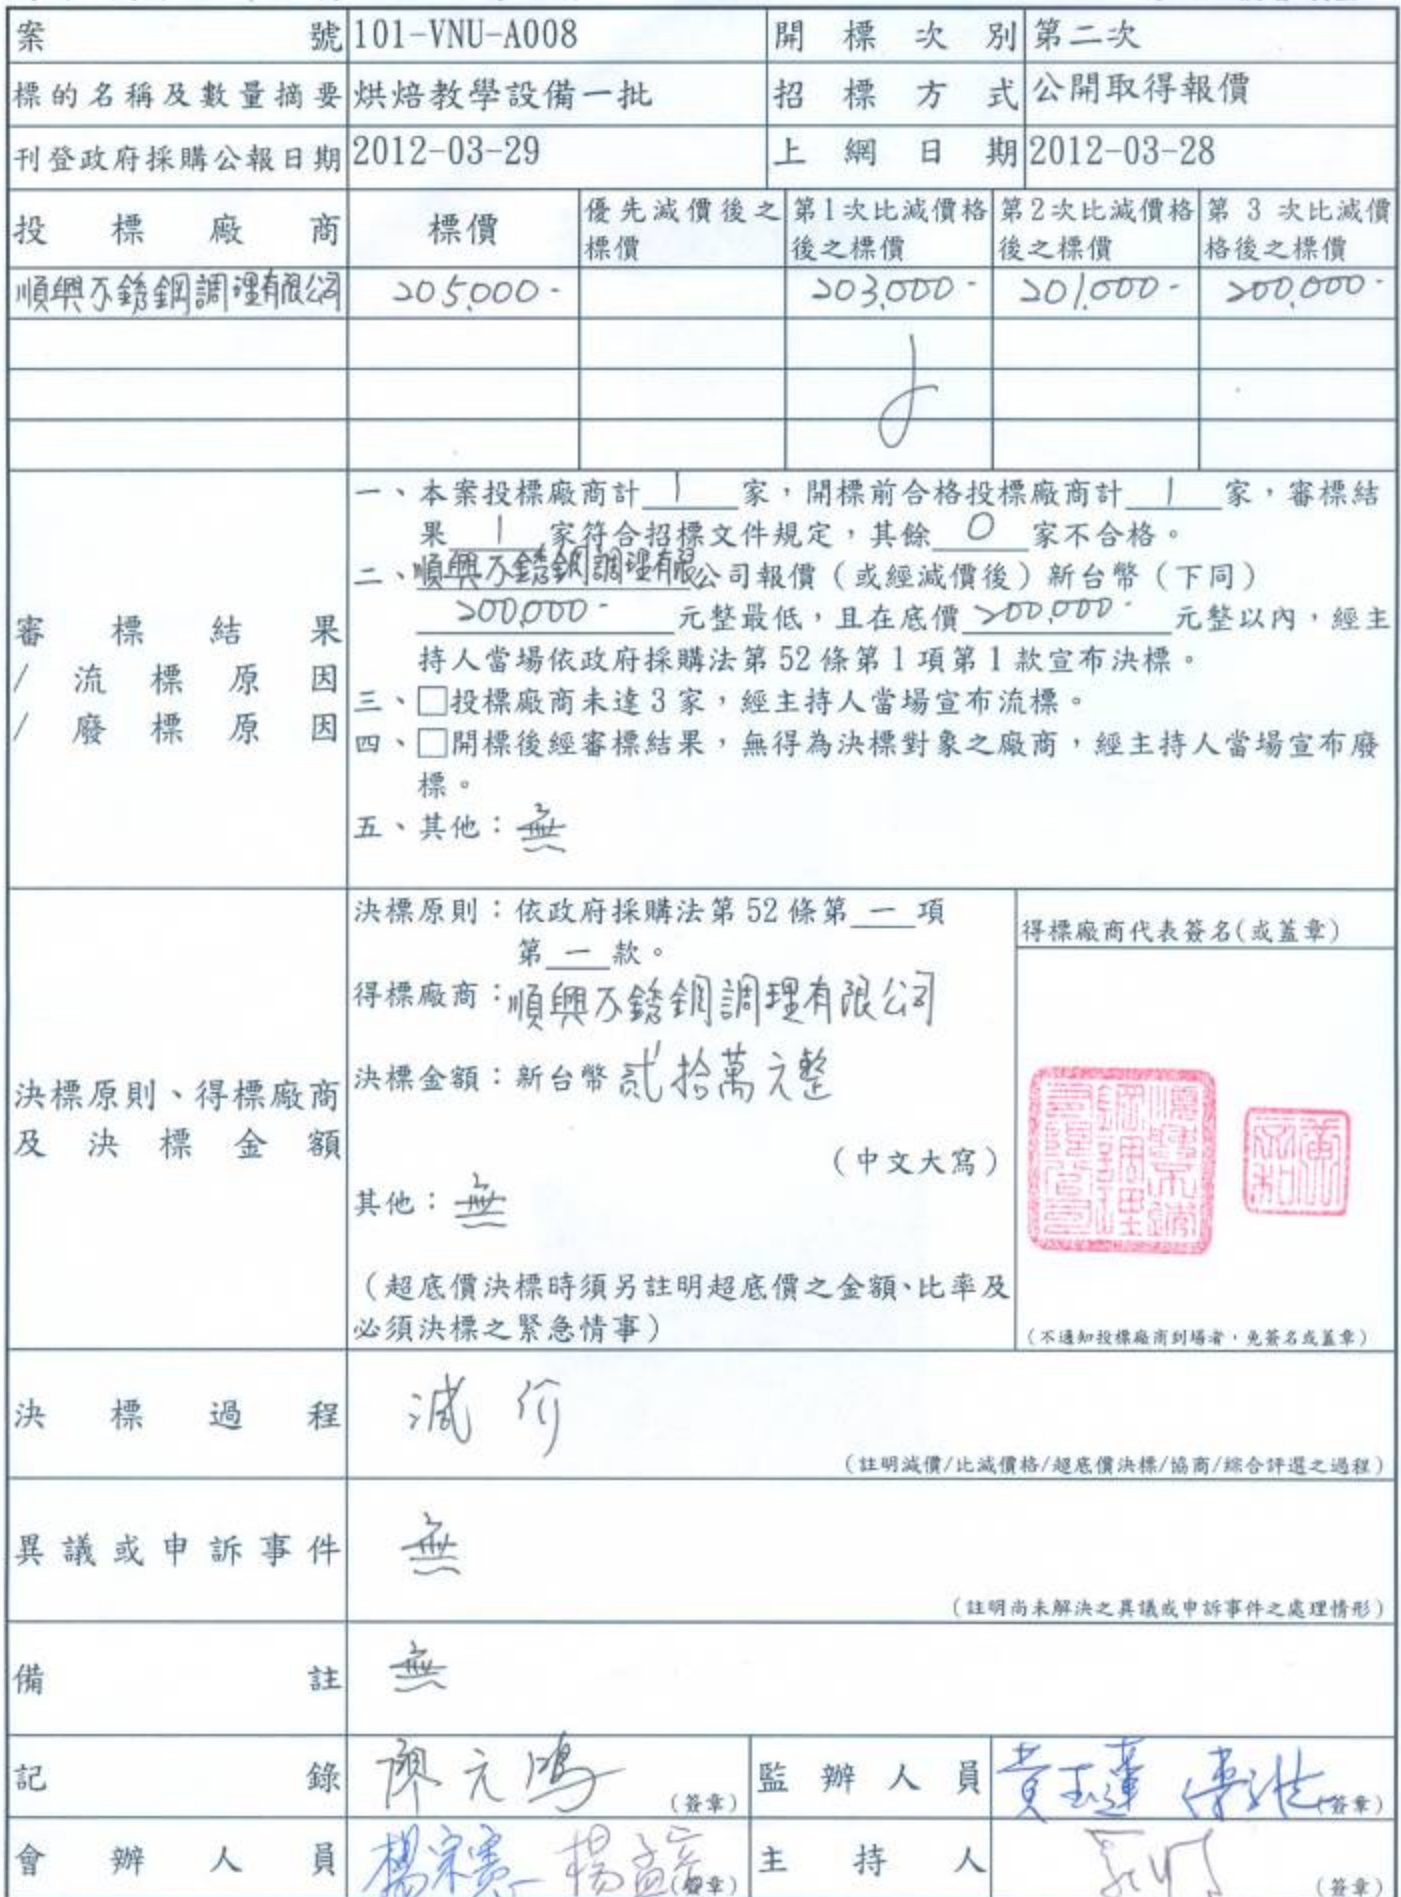 案號 101-VNU-A008 開標次別 第二次
標的名稱及數量摘要 烘焙教學設備一批 招標方式 公開取得報價
刊登政府採購公報日期 2012-03-29 上網日期 2012-03-28
投標廠商 標價 優先減價後之標價 第1次比減價格後之標價 第2次比減價格後之標價 第3次比減價格後之標價
順興不銹鋼調理有限公司 205,000- 203,000- 201,000- 200,000-
審標結果
/流標原因
/廢標原因
一、本案投標廠商計 1 家,開標前合格投標廠商計 1 家,審標結
果 1 家符合招標文件規定,其餘 0 家不合格。
二、順興不銹鋼調理有限公司報價(或經減價後)新台幣(下同)
200,000- 元整最低,且在底價 200,000- 元整以內,經主
持人當場依政府採購法第52條第1項第1款宣布決標。
三、□投標廠商未達3家,經主持人當場宣布流標。
四、□開標後經審標結果,無得為決標對象之廠商,經主持人當場宣布廢
標。
五、其他:無
決標原則、得標廠商
及決標金額
決標原則:依政府採購法第52條第 一 項
第 一 款。
得標廠商:順興不銹鋼調理有限公司
決標金額:新台幣 貳拾萬元整
(中文大寫)
其他:無
(超底價決標時須另註明超底價之金額、比率及
必須決標之緊急情事)
得標廠商代表簽名(或蓋章)
(不通知投標廠商到場者,免簽名或蓋章)
決標過程 減价
(註明減價/比減價格/超底價決標/協商/綜合評選之過程)
異議或申訴事件 無
(註明尚未解決之異議或申訴事件之處理情形)
備註 無
記錄 廖元鴻 (簽章) 監辦人員 黃玉蓮 (簽章)
會辦人員 (簽章) 主持人 (簽章)